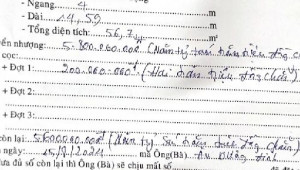 - Ngang: 4 m
- Dài: 14,59 m
- Tổng diện tích: 56,7 m²
nhượng: 5.800.000.000đ (Năm tỷ tám trăm triệu đồng
cọc:
+ Đợt 1: 200.000.000đ (Hai trăm triệu đồng chẵn)
+ Đợt 2:
+ Đợt 3:
còn lại: 5.600.000.000đ (Năm tỷ sáu trăm triệu đồng chẵn)
ngày: 15/9/2024 mà Ông(Bà)
đủ số còn lại thì Ông(Bà) sẽ chịu mất số